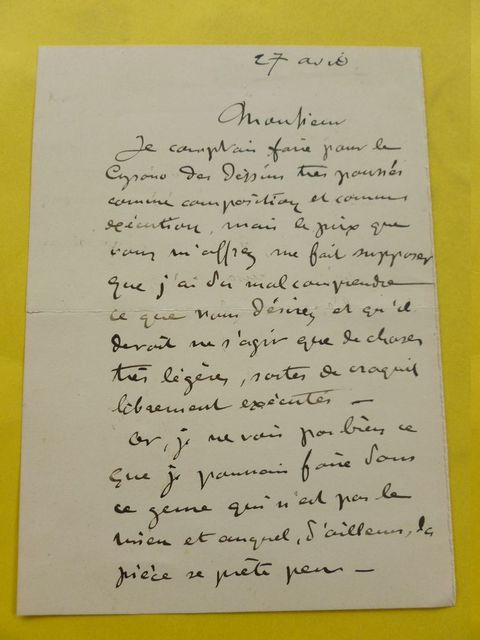 27 avril
Monsieur
Je comptais faire pour le
Cyrano des dessins très poussés
comme composition et comme
exécution, mais le prix que
vous m'offrez me fait supposer
que j'ai dû mal comprendre
ce que vous désirez et qu'il
devait ne s'agir que de choses
très légères, sortes de croquis
librement exécutés —
Or, je ne vois pas bien ce
que je pourrais faire dans
ce genre qui n'est pas le
mien et auquel, d'ailleurs, la
pièce se prête peu —